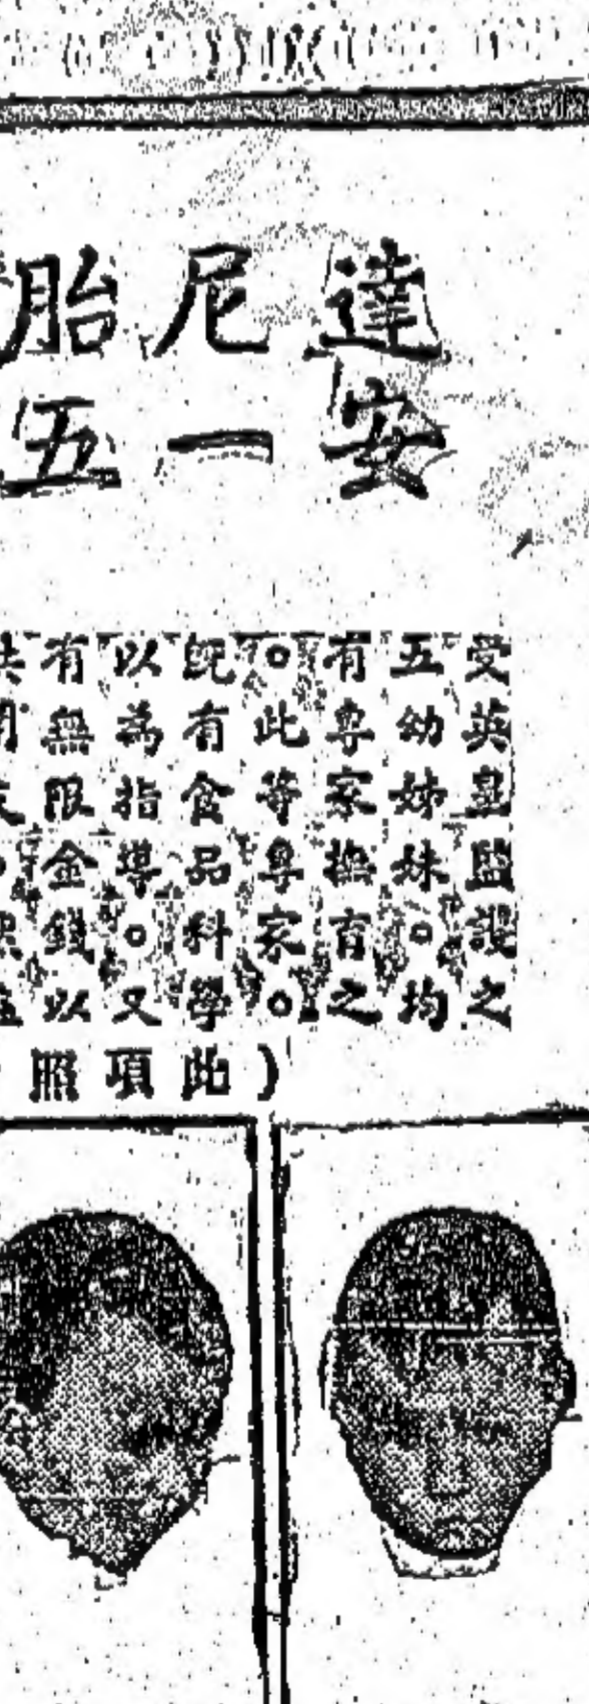 達安
尼一
胎五
受英皇監護之
五幼姊妹。均
有專家撫育之
。此等專家。
既有食品科學
以為指導。又
有無限金錢以
(此項照